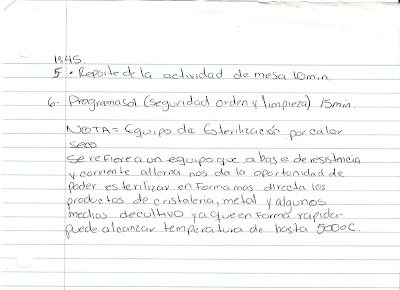 1:45.
5 - Reporte de la actividad de mesa 10min.
6- Programasol (seguridad orden y limpieza) 15min.
NOTA = Equipo de Esterilización por calor
seco
Se refiere a un equipo que a base de resistencia
y corriente alterna nos da la oportunidad de
poder esterilizar en forma mas directa los
productos de cristaleria, metal y algunos
medios de cultivo ya que en forma rapida
puede alcanzar temperatura de hasta 500°C.